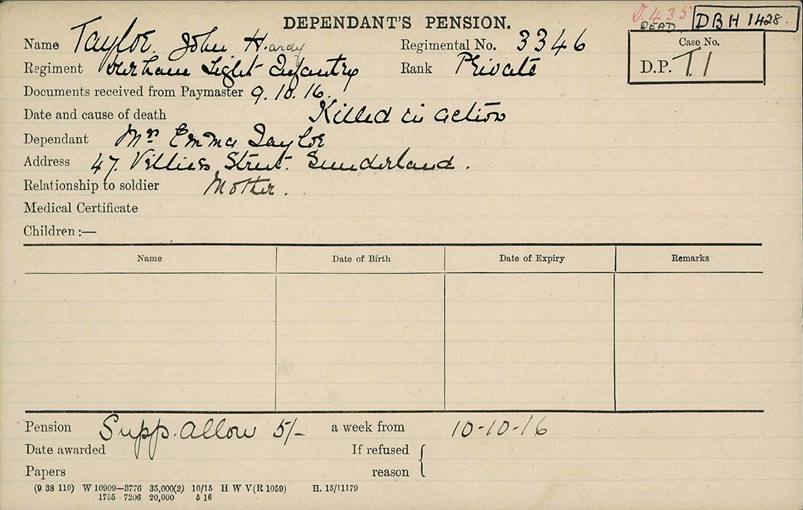 DEPENDANT'S PENSION.
T.435
DEAD
DBH 1428.
Name Taylor. John Hardy Regimental No. 3346
Case No.
D.P. T1
Regiment Durham Light Infantry Rank Private
Documents received from Paymaster 9.10.16.
Date and cause of death Killed in action
Dependant Mrs Emma Taylor
Address 47. Villiers Street. Sunderland.
Relationship to soldier Mother.
Medical Certificate
Children :—
Name Date of Birth Date of Expiry Remarks
Pension Supp. Allow 5/- a week from 10-10-16
Date awarded If refused {
Papers reason
(9 38 110) W 10909—3776 35,000(2) 10/15 H W V(R 1059) H. 15/11179
1755 7206 20,000 5 16